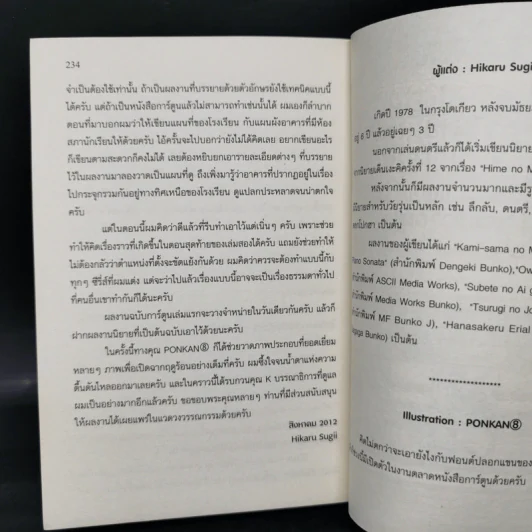 234
จำเป็นต้องใช้เท่านั้น ถ้าเป็นผลงานที่บรรยายด้วยตัวอักษรยังใช้เทคนิคแบบนี้
ได้ครับ แต่ถ้าเป็นหนังสือการ์ตูนแล้วไม่สามารถทำเช่นนั้นได้ ผมเองก็ลำบาก
ตอนที่มาบอกผมว่าให้เขียนแผนที่ของโรงเรียน กับแผนผังอาคารที่มีห้อง
สภานักเรียนให้ด้วยครับ ไอ้ครั้นจะไปบอกว่ายังไม่ได้คิดเลย อยากเขียนอะไร
ก็เขียนตามสะดวกก็คงไม่ได้ เลยต้องหยิบยกเอารายละเอียดต่างๆ ที่บรรยาย
ไว้ในผลงานมาลองวาดเป็นแผนที่ดู ถึงเพิ่งมารู้ว่าอาคารที่ปรากฏอยู่ในเรื่อง
ไปกระจุกรวมกันอยู่ทางทิศเหนือของโรงเรียน ดูแปลกประหลาดจนน่าตกใจ
ครับ
แต่ในตอนนี้ผมคิดว่าดีแล้วที่รีบทำเอาไว้แต่เนิ่นๆ ครับ เพราะช่วย
ทำให้คิดเรื่องราวที่เกิดขึ้นในตอนสุดท้ายของเล่มสองได้ครับ แถมยังช่วยทำให้
ไม่ต้องกลัวว่าตำแหน่งที่ตั้งจะขัดแย้งกันด้วย ผมคิดว่าควรจะต้องทำแบบนี้กับ
ทุกๆ ซีรี่ส์ที่ผมแต่ง แต่จะว่าไปแล้วเรื่องแบบนี้อาจจะเป็นเรื่องธรรมดาทั่วไป
ที่คนอื่นเขาทำกันก็ได้นะครับ
ผลงานฉบับการ์ตูนเล่มแรกจะวางจำหน่ายในวันเดียวกันครับ แล้วก็
ฝากผลงานนิยายที่เป็นต้นฉบับเอาไว้ด้วยนะครับ
ในครั้งนี้ทางคุณ PONKAN⑧ ก็ได้ช่วยวาดภาพประกอบที่ยอดเยี่ยม
หลายๆ ภาพเพื่อเปิดฉากฤดูร้อนอย่างเต็มที่ครับ ผมซึ้งใจจนน้ำตาแห่งความ
ตื้นตันไหลออกมาเลยครับ และในคราวนี้ได้รบกวนคุณ K บรรณาธิการที่ดูแล
ผมเป็นอย่างมากอีกแล้วครับ ขอขอบพระคุณหลายๆ ท่านที่มีส่วนสนับสนุน
ให้ผลงานได้เผยแพร่ในแวดวงวรรณกรรมด้วยครับ
สิงหาคม 2012
Hikaru Sugii
ผู้แต่ง : Hikaru Sugi
เกิดปี 1978 ในกรุงโตเกียว หลังจบมัธยม
อยู่ 6 ปี แล้วอยู่เฉยๆ 3 ปี
นอกจากเล่นดนตรีแล้วก็ได้เริ่มเขียนนิยาย
นิยายเด็นเงะคิครั้งที่ 12 จากเรื่อง "Hime no M
หลังจากนั้นก็มีผลงานจำนวนมากและมีรู
นิยายสำหรับวัยรุ่นเป็นหลัก เช่น ลึกลับ, ดนตรี,
เป็นต้น
ผลงานของผู้เขียนได้แก่ "Kami-sama no M
Sonata" (สำนักพิมพ์ Dengeki Bunko),"Ow
พิมพ์ ASCII Media Works), "Subete no Ai
พิมพ์ Media Works Bunko), "Tsurugi no Jo
พิมพ์ MF Bunko J), "Hanasakeru Erial
Bunko) เป็นต้น
********************
Illustration : PONKAN⑧
คิดไม่ตกว่าจะเอายังไงกับฟอนต์ปลอกแขนของ
นี้มีเปิดตัวในงานตลาดหนังสือการ์ตูนด้วยครับ